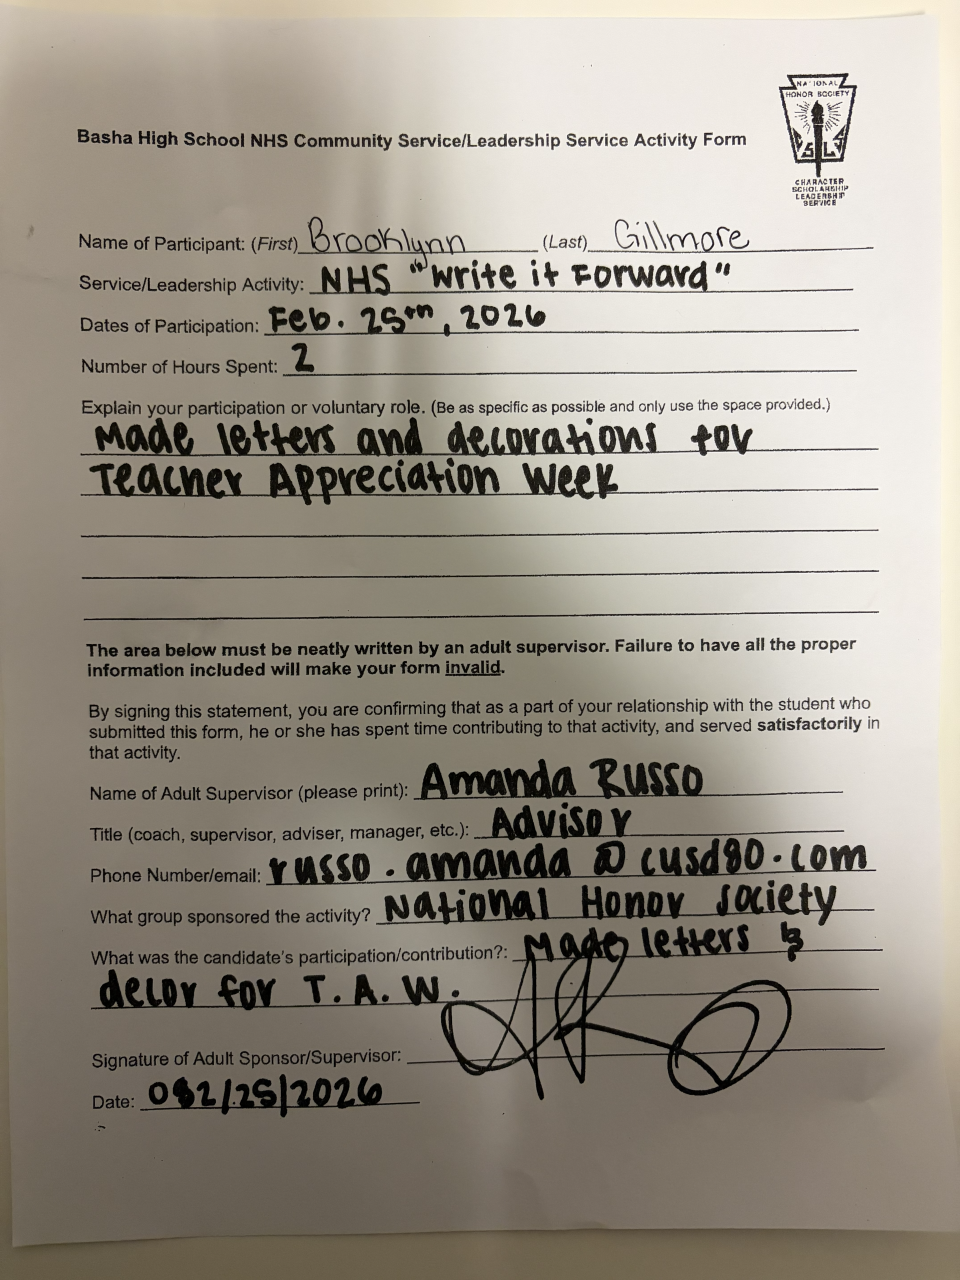 NATIONAL
HONOR SOCIETY
S L
CHARACTER
SCHOLARSHIP
LEADERSHIP
SERVICE
Basha High School NHS Community Service/Leadership Service Activity Form
Name of Participant: (First) Brooklynn (Last) Gillmore
Service/Leadership Activity: NHS "Write it Forward"
Dates of Participation: Feb. 25th, 2026
Number of Hours Spent: 2
Explain your participation or voluntary role. (Be as specific as possible and only use the space provided.)
Made letters and decorations for
Teacher Appreciation Week
The area below must be neatly written by an adult supervisor. Failure to have all the proper
information included will make your form invalid.
By signing this statement, you are confirming that as a part of your relationship with the student who
submitted this form, he or she has spent time contributing to that activity, and served satisfactorily in
that activity.
Name of Adult Supervisor (please print): Amanda Russo
Title (coach, supervisor, adviser, manager, etc.): Advisor
Phone Number/email: russo.amanda@cusd80.com
What group sponsored the activity? National Honor Society
What was the candidate's participation/contribution?: Made letters &
decor for T.A.W.
Signature of Adult Sponsor/Supervisor:
Date: 02/25/2026